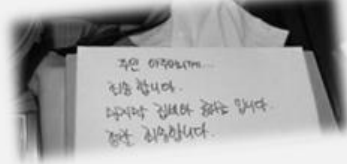 주인 아주머니께...
죄송합니다.
마지막 집세와 공과금입니다.
정말 죄송합니다.